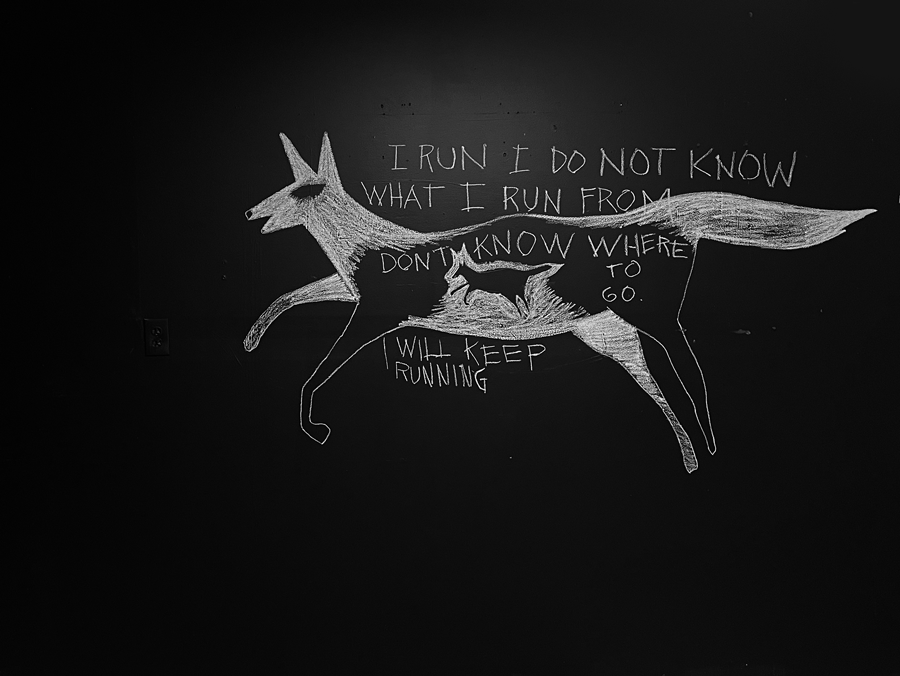 I RUN I DO NOT KNOW
WHAT I RUN FROM
DONT KNOW WHERE
TO
GO.
I WILL KEEP
RUNNING